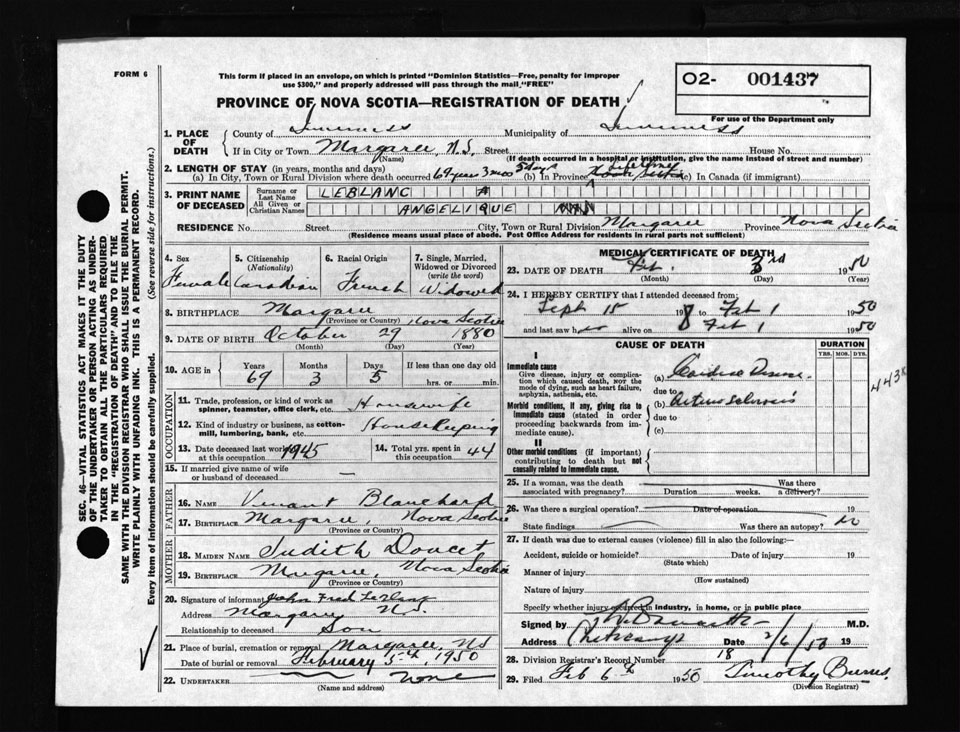 FORM 6
This form if placed in an envelope, on which is printed "Dominion Statistics—Free, penalty for improper
use $300," and properly addressed will pass through the mail "FREE"
O2- 001437
For use of the Department only
PROVINCE OF NOVA SCOTIA—REGISTRATION OF DEATH
1. PLACE OF DEATH
County of Inverness Municipality of Inverness
If in City or Town Margaree, N.S. Street House No.
(Name) (If death occurred in a hospital or institution, give the name instead of street and number)
2. LENGTH OF STAY (in years, months and days)
(a) In City, Town or Rural Division where death occurred 69 years 3 mos 5 days (b) In Province Nova Scotia lifetime (c) In Canada (if immigrant)
3. PRINT NAME OF DECEASED
Surname or Last Name LEBLANC
All Given or Christian Names ANGELIQUE
RESIDENCE No. Street City, Town or Rural Division Margaree Province Nova Scotia
(Residence means usual place of abode. Post Office Address for residents in rural parts not sufficient)
4. Sex Female
5. Citizenship (Nationality) Canadian
6. Racial Origin French
7. Single, Married, Widowed or Divorced (write the word) Widowed
8. BIRTHPLACE Margaree Nova Scotia
(Province or Country)
9. DATE OF BIRTH October 29 1880
(Month) (Day) (Year)
10. AGE in Years Months Days If less than one day
69 3 5 hrs. or min.
OCCUPATION
11. Trade, profession or kind of work as spinner, teamster, office clerk, etc. Housewife
12. Kind of industry or business, as cotton-mill, lumbering, bank, etc. Housekeeping
13. Date deceased last worked at this occupation 1945
14. Total yrs. spent in this occupation 44
15. If married give name of wife or husband of deceased —
FATHER
16. NAME Vincent Blanchard
17. BIRTHPLACE Margaree, Nova Scotia
(Province or Country)
MOTHER
18. MAIDEN NAME Judith Doucet
19. BIRTHPLACE Margaree, Nova Scotia
(Province or Country)
20. Signature of informant John Fred LeBlanc
Address Margaree N.S.
Relationship to deceased Son
21. Place of burial, cremation or removal Margaree, NS
Date of burial or removal February 5th, 1950
22. UNDERTAKER none
(Name and address)
MEDICAL CERTIFICATE OF DEATH
23. DATE OF DEATH Feb. 3rd 1950
(Month) (Day) (Year)
24. I HEREBY CERTIFY that I attended deceased from:
Sept 15 19 to Feb 1 1950
and last saw her alive on Feb 1 1950
CAUSE OF DEATH DURATION
YRS. MOS. DYS.
I
Immediate cause
Give disease, injury or complication which caused death, NOT the mode of dying, such as heart failure, asphyxia, asthenia, etc.
(a) Cardiac Disease
due to
Morbid conditions, if any, giving rise to immediate cause (stated in order proceeding backwards from immediate cause).
(b) Arteriosclerosis
due to
(c)
II
Other morbid conditions (if important) contributing to death but not causally related to immediate cause.
443
25. If a woman, was the death associated with pregnancy? Duration weeks. Was there a delivery?
26. Was there a surgical operation? Date of operation 19
State findings Was there an autopsy? no
27. If death was due to external causes (violence) fill in also the following:—
Accident, suicide or homicide? Date of injury 19
(State which)
Manner of injury
(How sustained)
Nature of injury
Specify whether injury occurred in industry, in home, or in public place
Signed by M.D.
Address Cheticamp Date 2/6/50 19
28. Division Registrar's Record Number 18
29. Filed Feb 6th 1950 Timothy Burns
(Division Registrar)
SEC. 46—VITAL STATISTICS ACT MAKES IT THE DUTY
OF THE UNDERTAKER OR PERSON ACTING AS UNDER-
TAKER TO OBTAIN ALL THE PARTICULARS REQUIRED
IN THE "REGISTRATION OF DEATH" AND TO FILE THE
SAME WITH THE DIVISION REGISTRAR WHO SHALL ISSUE THE BURIAL PERMIT.
WRITE PLAINLY WITH UNFADING INK. THIS IS A PERMANENT RECORD.
Every item of information should be carefully supplied. (See reverse side for instructions.)